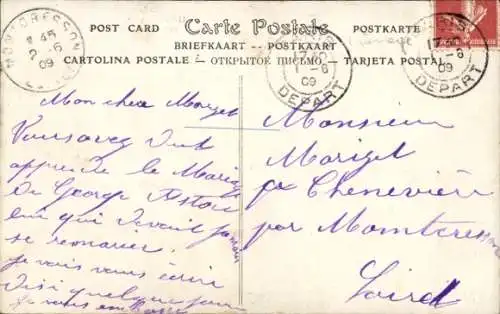 POST CARD Carte Postale POSTKARTE
BRIEFKAART — POSTKAART
CARTOLINA POSTALE — ОТКРЫТОЕ ПИСЬМО — TARJETA POSTAL
MONTCRESSON
2 -6
09
17
-6
09
DEPART
17
-6
09
DEPART
Mon cher Morizet
Vous avez dut
apprendre le Mariage
De George
lui qui devait jamais
se remarier.
je vais vous écrire
D'isi quelque jour
Je vous embrasse
Monsieur
Morizet
Chenevière
par Montcresson
Loiret